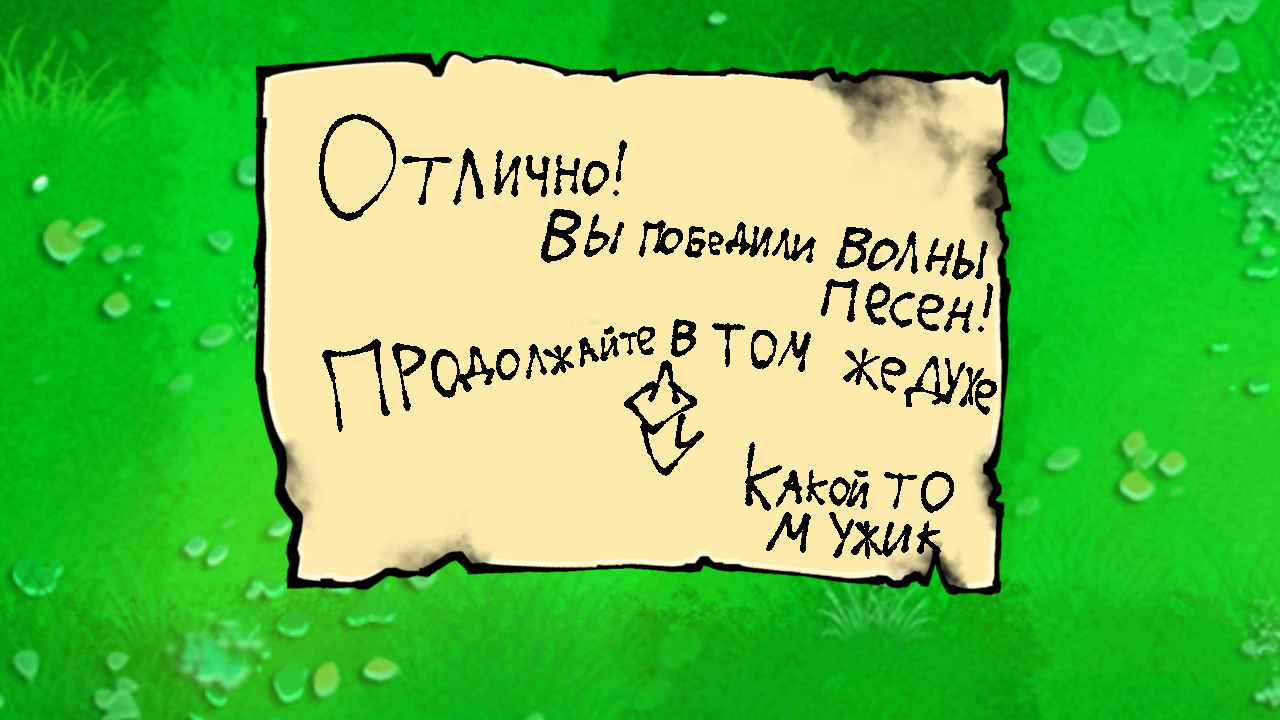 Отлично!
Вы победили волны
песен!
Продолжайте в том же духе
Какой то
мужик